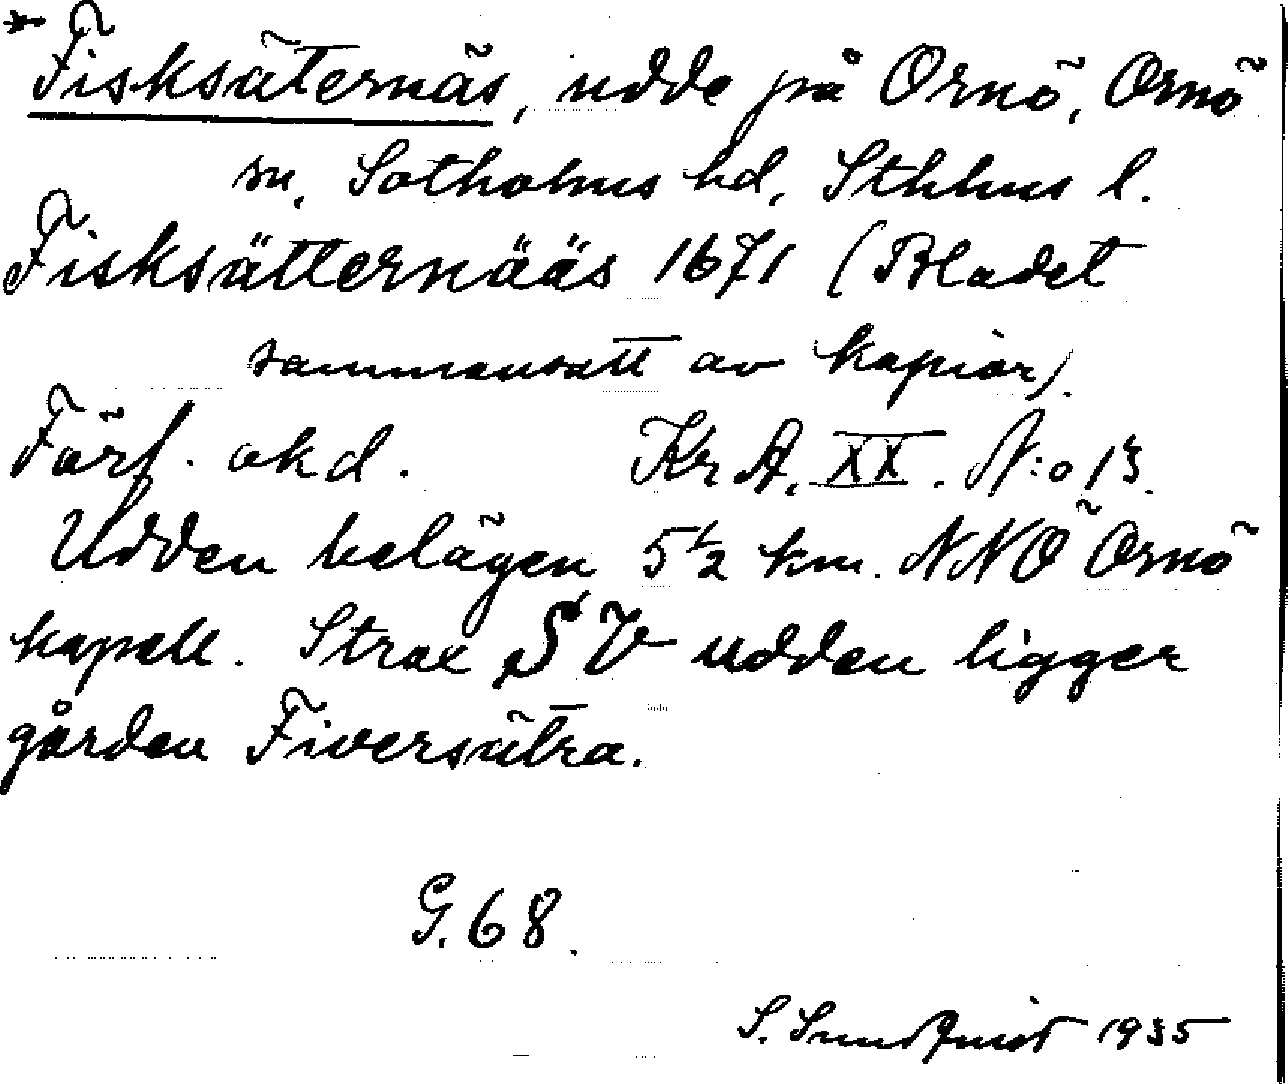 * Fisksäternäs, udde på Ornö, Ornö
sn, Sotholms hd, Sthlms l.
Fisksätternääs 1671 (Bladet
sammansatt av kopior).
Förf. okd. Kr A. XX. N:o 13.
Udden belägen 5½ km. NNO Ornö
kapell. Strax SV udden ligger
gården Fiversätra.
G. 68.
S. Sundquist 1935